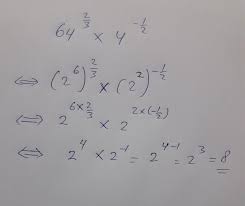 64^(2/3) × 4^(-1/2)
⇔ (2^6)^(2/3) × (2^2)^(-1/2)
⇔ 2^(6×2/3) × 2^(2×(-1/2))
⇔ 2^4 × 2^-1 = 2^(4-1) = 2^3 = 8